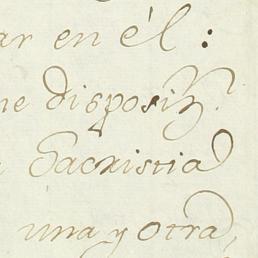 ar en él :
ne disposiz.ⁿ
Sacristia
una y otra,